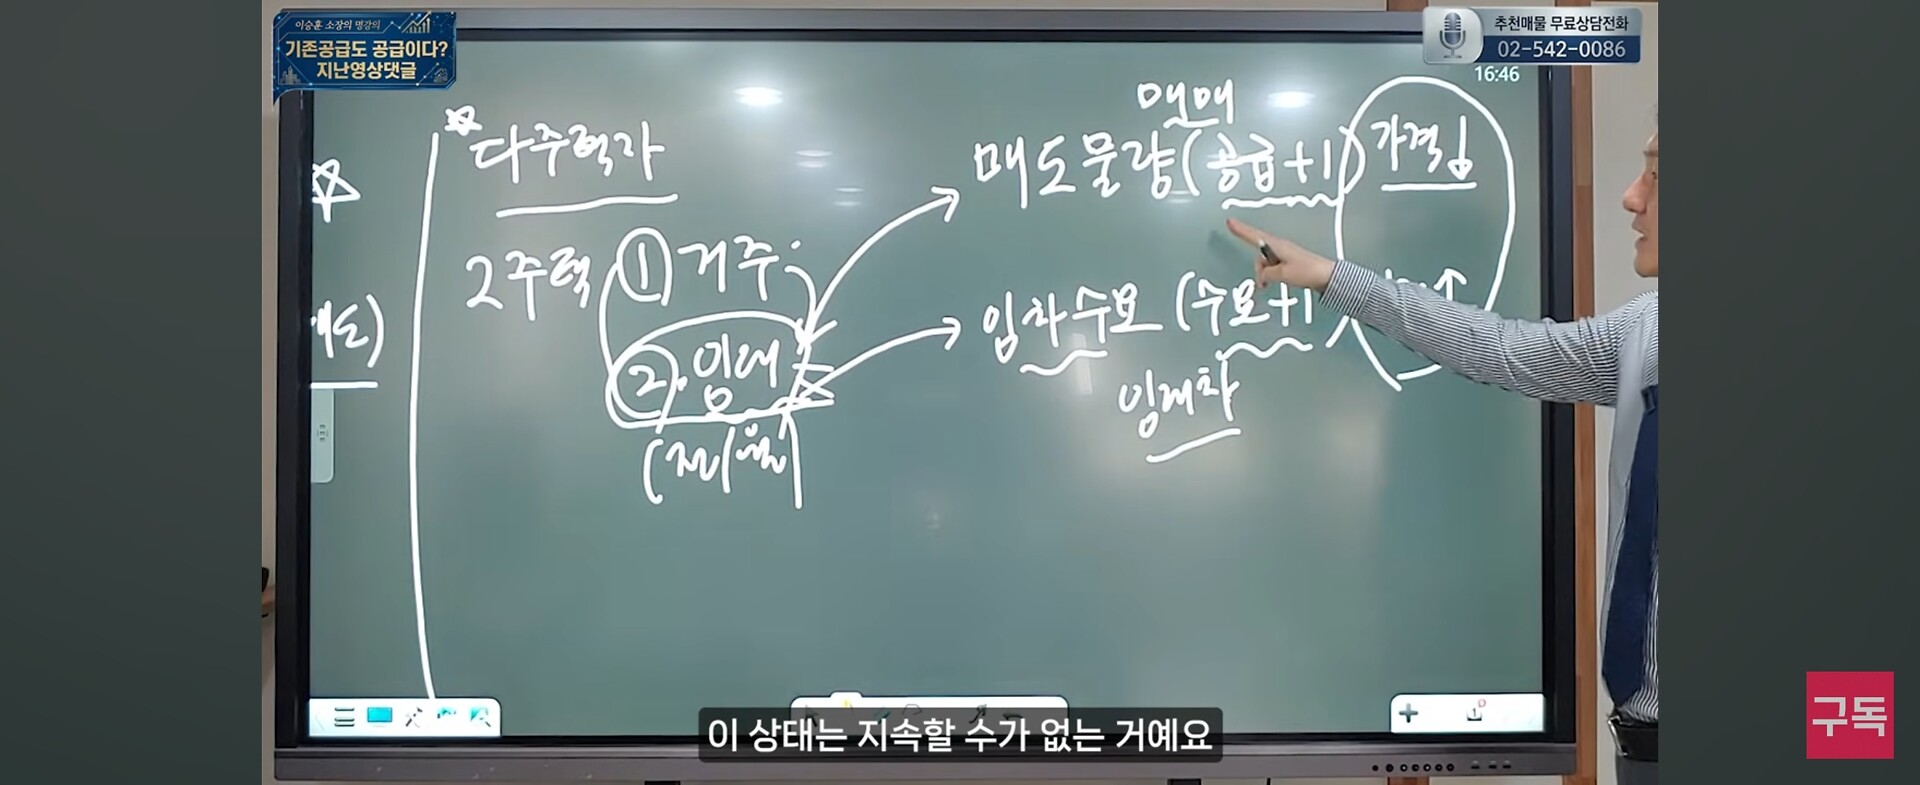 이승훈 소장의 명강의
기존공급도 공급이다?
지난영상댓글
추천매물 무료상담전화
02-542-0086
16:46
다주택자
2주택 ① 거주
② 임대
(전/월)
매매
매도물량(공급+1) 가격↓
임차수요 (수요+1
임대차
이 상태는 지속할 수가 없는 거예요
구독